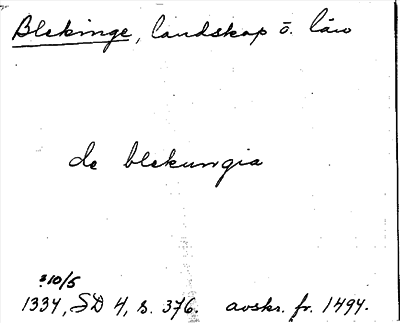 Blekinge, landskap o. län
de blekungia
10/5
1334, SD 4, s. 376. avskr. fr. 1494.